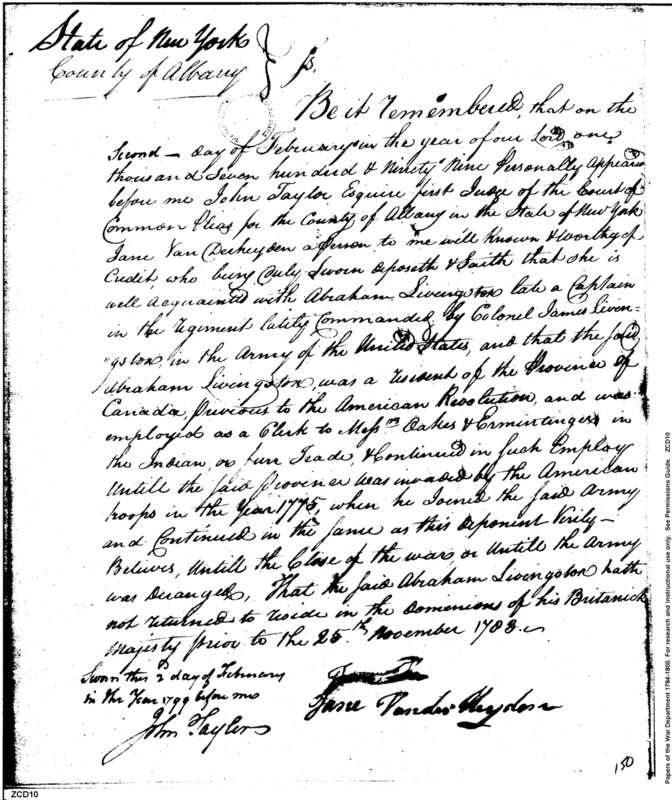 State of New York
County of Albany } ss.
Be it remembered, that on the
Second — day of February in the year of our Lord one
thousand Seven hundred & Ninety Nine Personally Appeared
before me John Taylor Esquire first Judge of the Court of
Common Pleas for the County of Albany in the State of New York
Jane Van Derheyden a person to me well known & Worthy of
Credit who being duly Sworn deposeth & Saith that she is
well acquainted with Abraham Livingston late a Captain
in the regiment lately Commanded by Colonel James Livin=
"gston, in the Army of the United States, and that the said
Abraham Livingston, was a resident of the Province of
Canada, previous to the American Revolution, and was
employed as a Clerk to Messrs Oakes & Ermintingers in
the Indian, or furr Trade, & Continued in such Employ
Untill the said Provence was invaded by the American
troops in the Year 1775, when he Joined the said Army
and Continued in the same as this deponent Verily—
Believes, Untill the Close of the war, or Untill the Army
was Deranged, That the said Abraham Livingston hath
not returned to reside in the Domenions of his Britanick
Majesty prior to the 25th November 1783.
Sworn this 2d day of February
in the Year 1799 before me
John Taylor
Jane Vander Heyden
150
ZCD10
Papers of the War Department 1784-1800. For research and instructional use only. See Permissions Guide. ZCD10